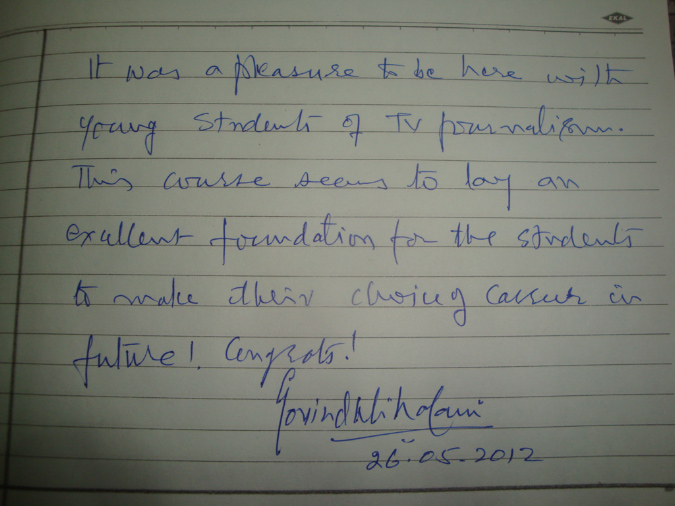 EKAL
It was a pleasure to be here with
young students of TV journalism.
This course seems to lay an
excellent foundation for the students
to make their choice of career in
future! Congrats!
Govind Nihalani
26.05.2012